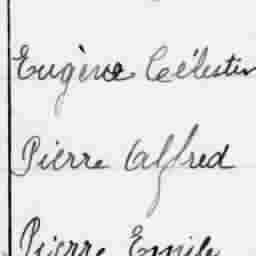 Eugène Célestin
Pierre Alfred
Pierre Emile